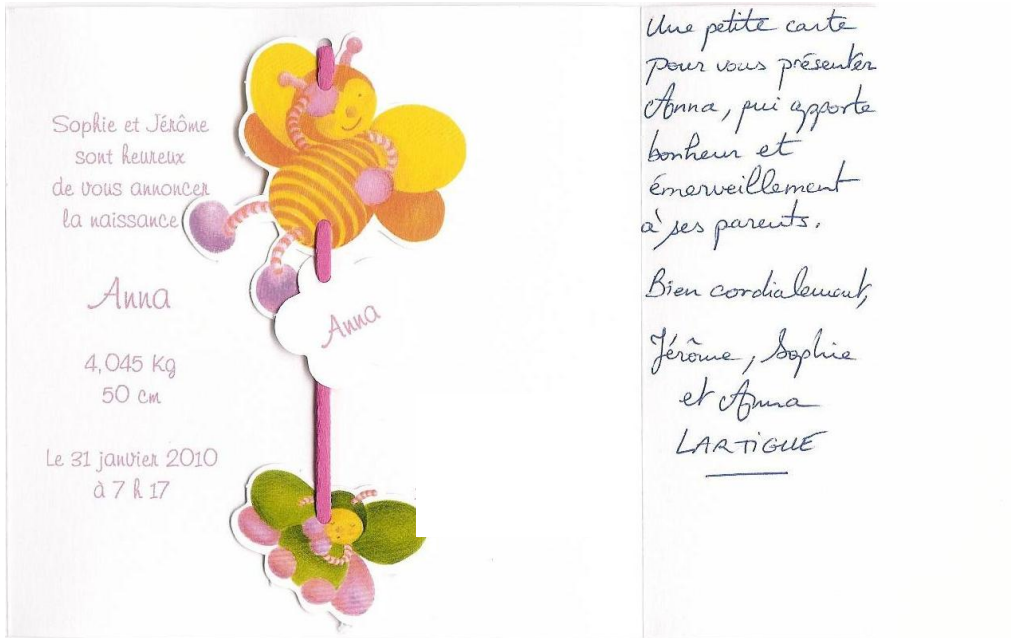 Sophie et Jérôme
sont heureux
de vous annoncer
la naissance
Anna
4,045 Kg
50 cm
Le 31 janvier 2010
à 7 h 17
Anna
Une petite carte
pour vous présenter
Anna, qui apporte
bonheur et
émerveillement
à ses parents.
Bien cordialement,
Jérôme, Sophie
et Anna
LARTIGUE